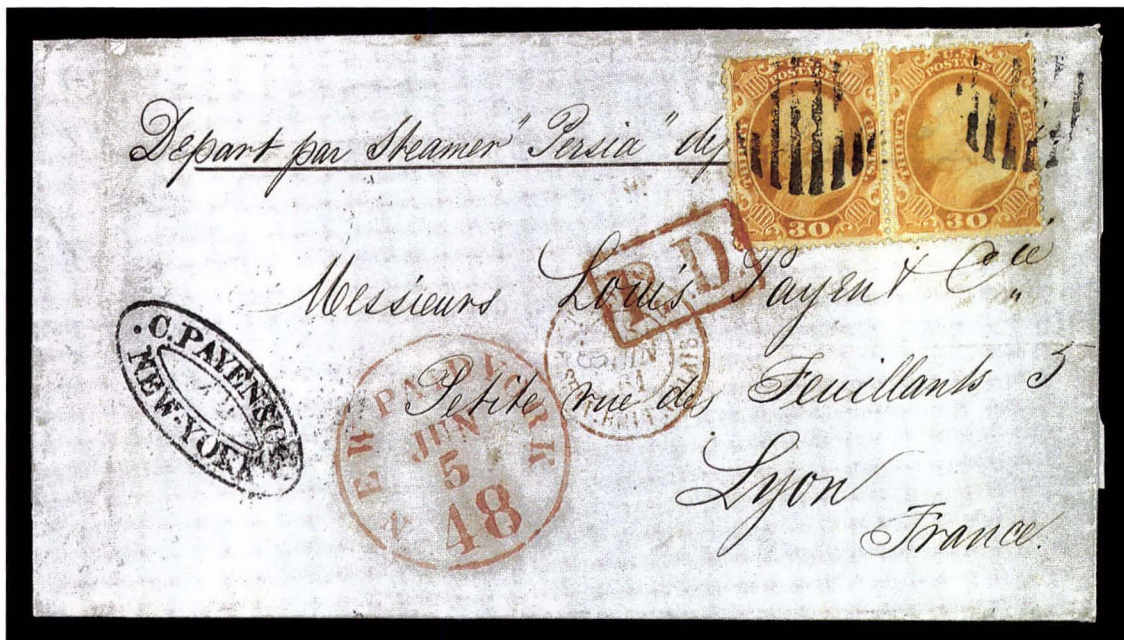 Depart par Steamer "Persia"
U.S. POSTAGE
THIRTY CENTS
30
U.S. POSTAGE
THIRTY CENTS
30
P.D.
Messieurs Louis Payen & Cie
Petite rue des Feuillants 5
Lyon
France.
.C. PAYEN & C
NEW-YORK
NEW PAID YORK
JUN
5
48
JUIN
61
CALAIS